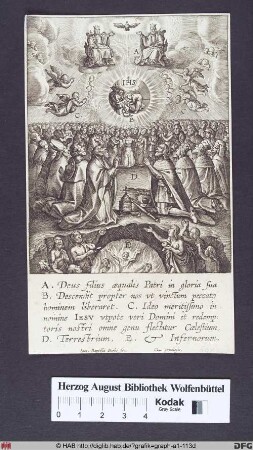 IHS
A
B
C
D
E
A. Deus filius æqualis Patri in gloria sua
B. Descendit propter nos ut vinctum peccato
hominem liberaret. C. Ideo meritissimo in
nomine IESV utpote veri Domini et redemp-
toris nostri omne genu flectitur Cælestium.
D. Terrestrium. E. & Infernorum.
Herzog August Bibliothek Wolfenbüttel
0 1 2 3 4
Kodak
Gray Scale
© HAB http://diglib.hab.de/?grafik=graph-a1-113d
DFG